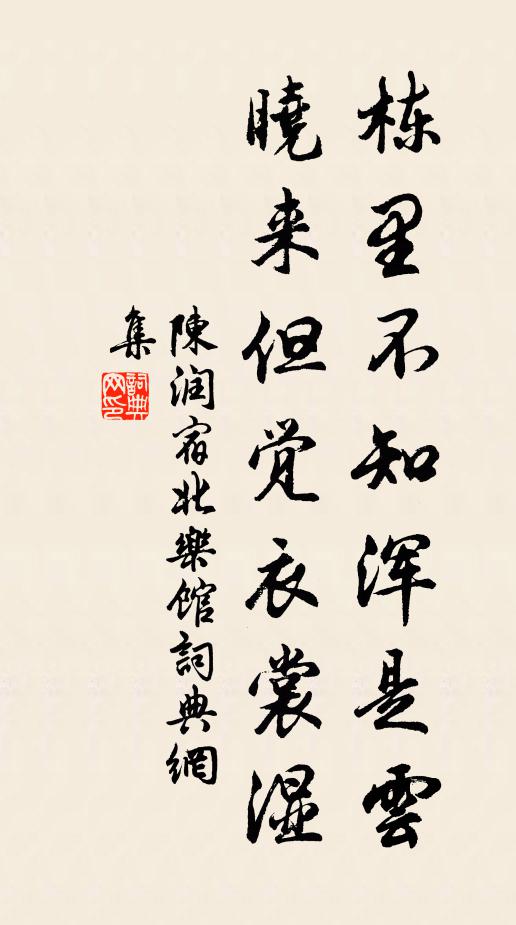 栋里不知浑是雲
曉来但觉衣裳湿
陳润宿北樂馆詞典網
集
詞典
网印